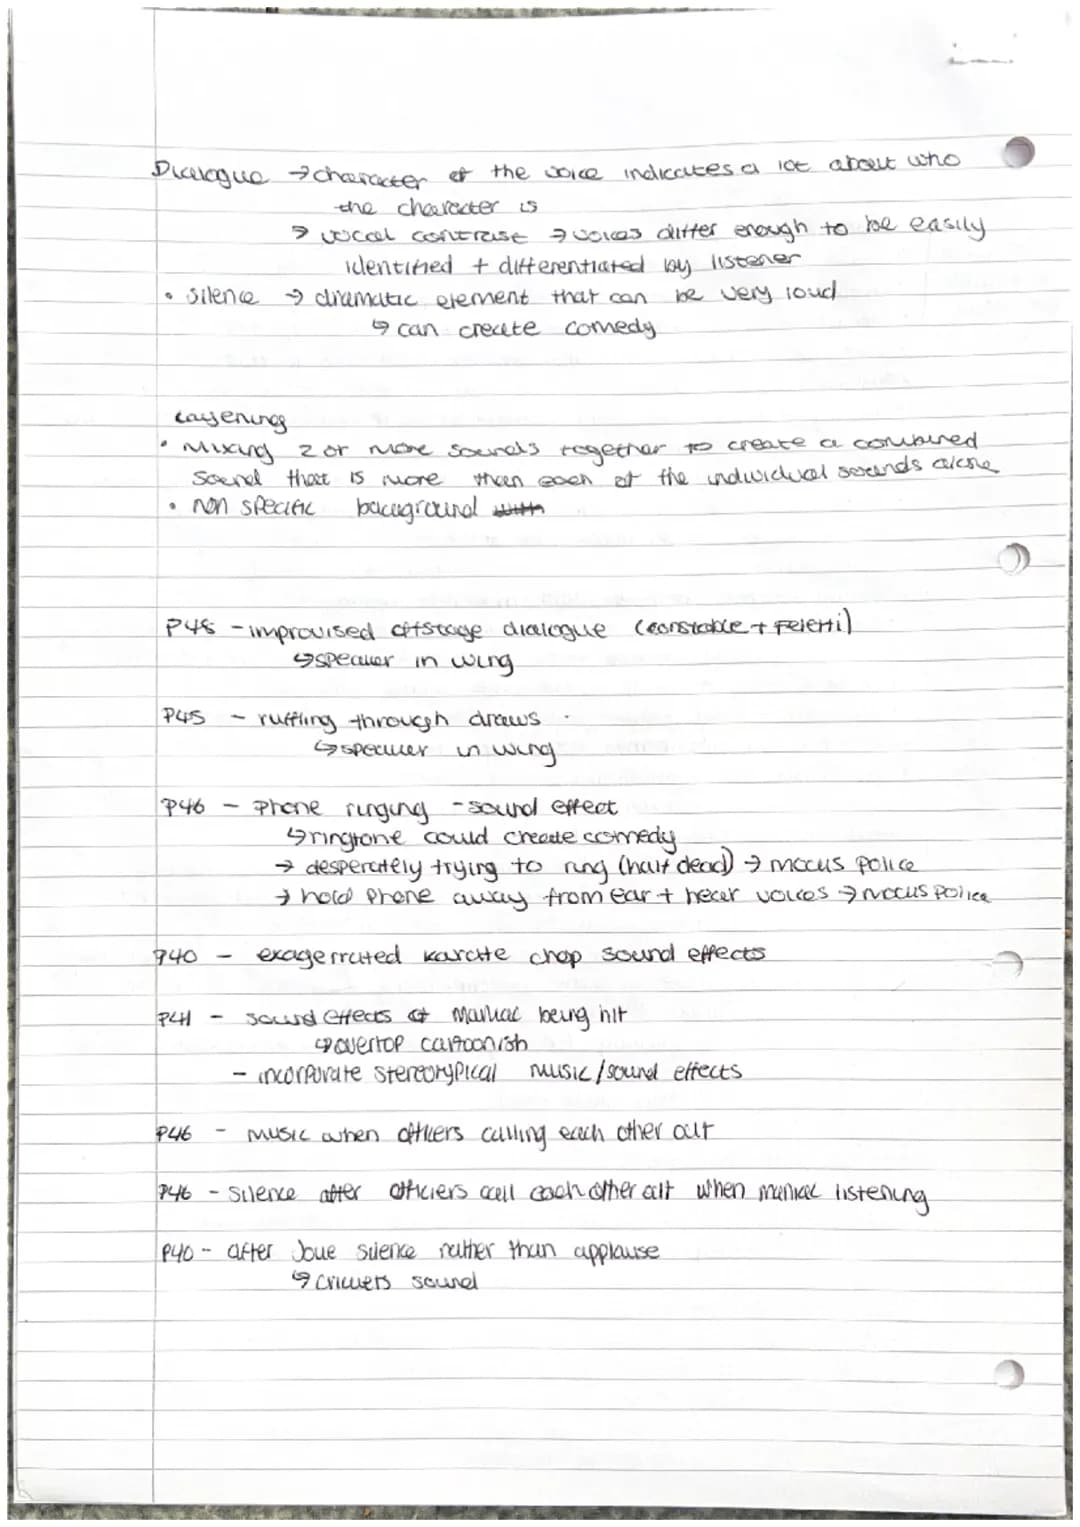 Dialogue → character of the voice indicates a lot about who
the character is
→ vocal contrast → voices differ enough to be easily
identified + differentiated by listener
• silence → dramatic element that can be very loud
↳ can create comedy
Layering
• Mixing 2 or more sounds together to create a combined
sound that is more than each of the individual sounds alone
• non specific background with
P48 - improvised offstage dialogue (constable + Feletti)
↳ speaker in wing
P45 - ruffling through draws
↳ speaker in wing
P46 - Phone ringing - sound effect
↳ ringtone could create comedy
→ desperately trying to ring (half dead) → mocks police
→ hold phone away from ear + hear voices → mocks police
P40 - exagerrated karate chop sound effects
P41 - sound effects of Maniac being hit
↳ overtop cartoonish
- incorporate stereotypical music/sound effects
P46 - music when officers calling each other out
P46 - Silence after officiers call each other out when maniac listening
P40 - after Joue silence rather than applause
↳ crickets sound